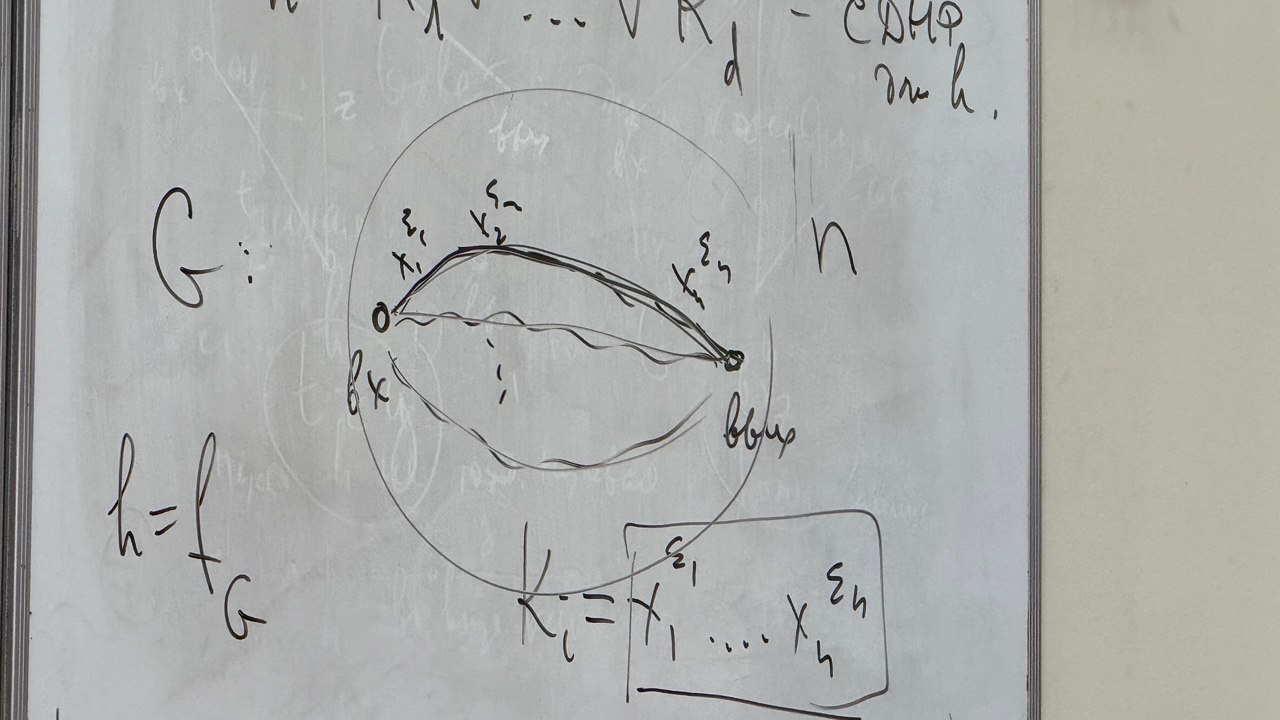 K₁ ∨ ... ∨ K_d - СДНФ
для h.
G:
x₁^ε₁ x₂^ε₂ xₙ^εₙ
n
вх
вых
h = f_G
Kᵢ = x₁^ε₁ .... xₙ^εₙ